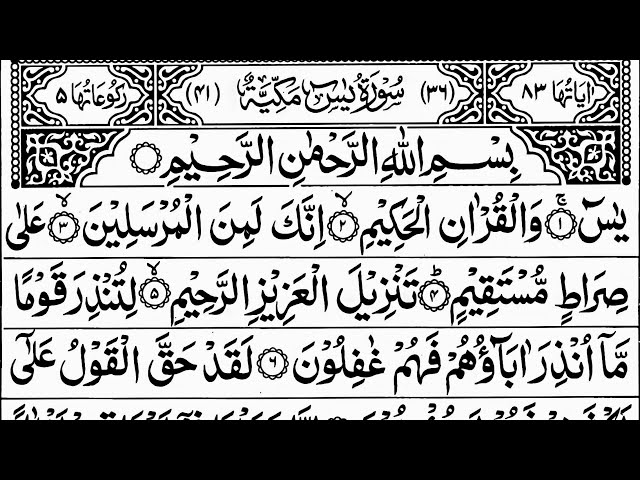 اٰيَاتُهَا ٨٣ (٣٦) سُوْرَةُ يٰسٓ مَكِّيَّةٌ (٤١) رُكُوْعَاتُهَا ٥
بِسْمِ اللّٰهِ الرَّحْمٰنِ الرَّحِيْمِ ۝
يٰسٓ ۝١ۚ وَالْقُرْاٰنِ الْحَكِيْمِ ۝٢ۙ اِنَّكَ لَمِنَ الْمُرْسَلِيْنَ ۝٣ۙ عَلٰى
صِرَاطٍ مُّسْتَقِيْمٍ ۝٤ؕ تَنْزِيْلَ الْعَزِيْزِ الرَّحِيْمِ ۝٥ۙ لِتُنْذِرَ قَوْمًا
مَّاۤ اُنْذِرَ اٰبَآؤُهُمْ فَهُمْ غٰفِلُوْنَ ۝٦ لَقَدْ حَقَّ الْقَوْلُ عَلٰۤى